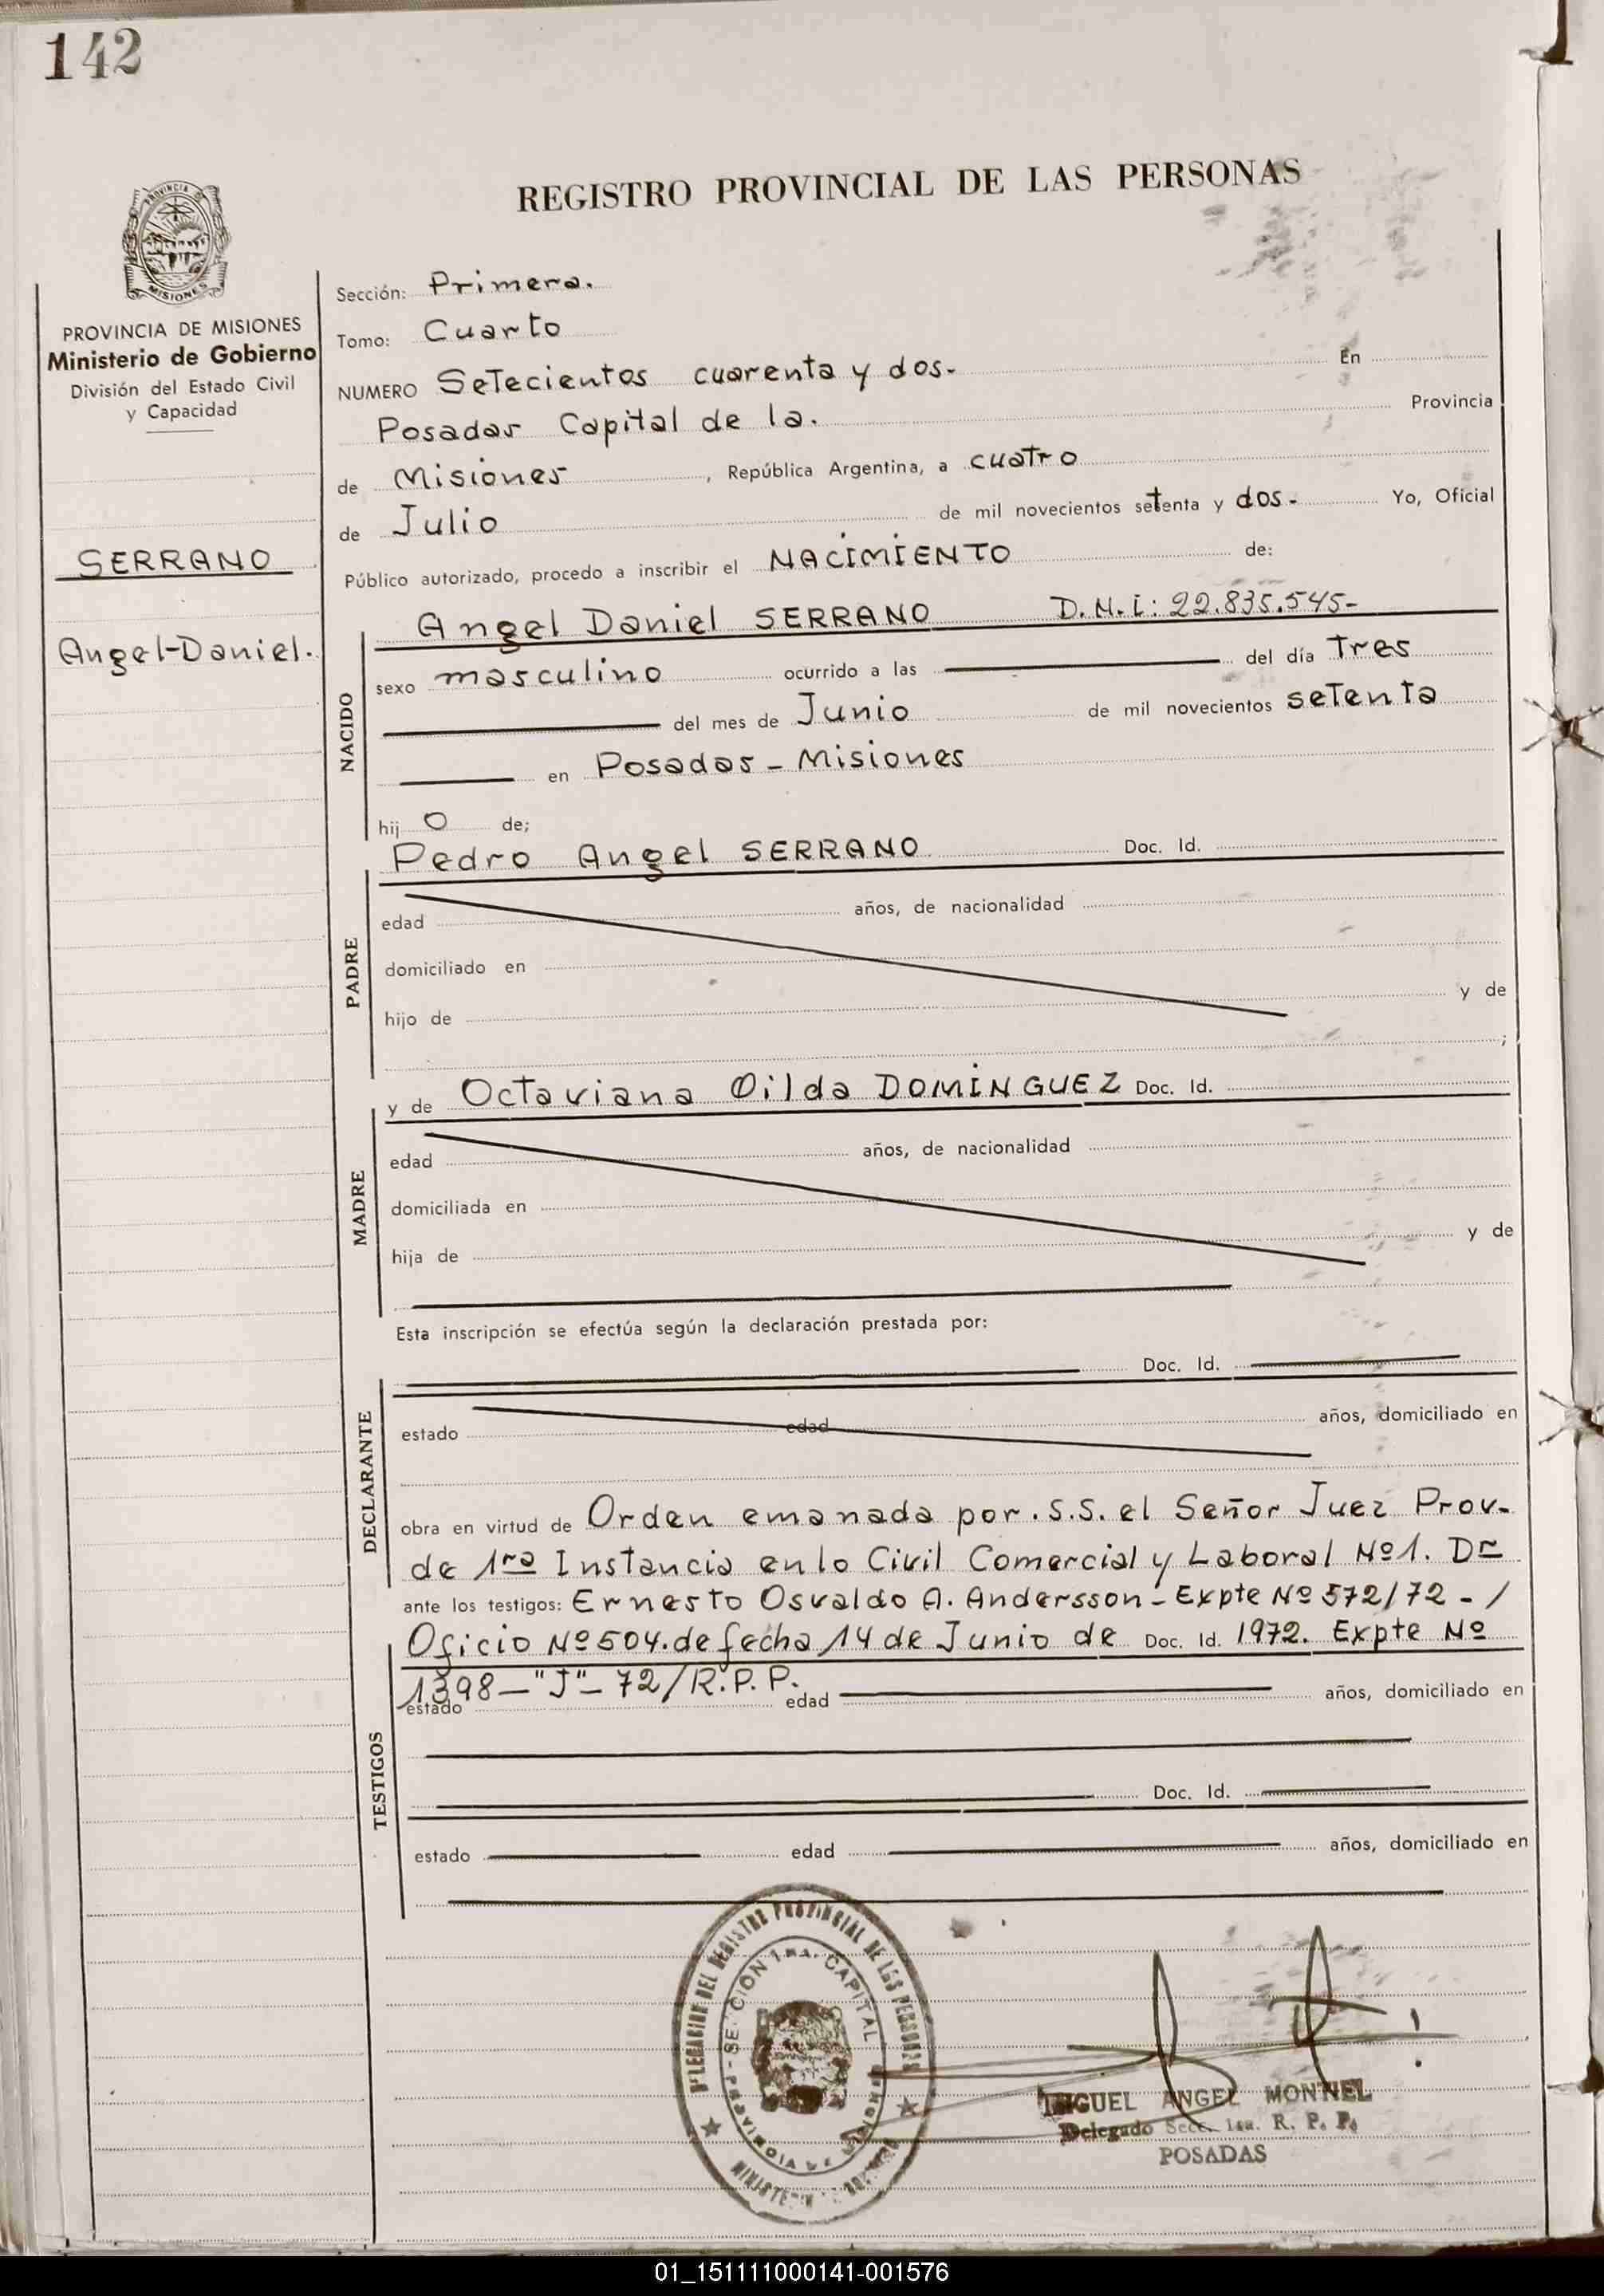 142
REGISTRO PROVINCIAL DE LAS PERSONAS
PROVINCIA DE MISIONES
MISIONES
PROVINCIA DE MISIONES
Ministerio de Gobierno
División del Estado Civil
y Capacidad
SERRANO
Angel-Daniel.
Sección: Primera.
Tomo: Cuarto
NUMERO Setecientos cuarenta y dos. En
Posadas Capital de la. Provincia
de Misiones, República Argentina, a cuatro
de Julio de mil novecientos setenta y dos.- Yo, Oficial
Público autorizado, procedo a inscribir el NACIMIENTO de:
NACIDO
Angel Daniel SERRANO D.N.I: 22.835.545-
sexo masculino ocurrido a las del día Tres
del mes de Junio de mil novecientos setenta
en Posadas - Misiones
hij o de;
PADRE
Pedro Angel SERRANO Doc. Id.
edad años, de nacionalidad
domiciliado en
hijo de y de
;
MADRE
y de Octaviana Oilda DOMINGUEZ Doc. Id.
edad años, de nacionalidad
domiciliada en
hija de y de
Esta inscripción se efectúa según la declaración prestada por:
Doc. Id.
DECLARANTE
estado edad años, domiciliado en
obra en virtud de Orden emanada por. S.S. el Señor Juez Prov-
de 1ra Instancia en lo Civil Comercial y Laboral Nº1. Dr
ante los testigos: Ernesto Osvaldo A. Andersson - Expte Nº 572/72 - /
Oficio Nº 504. de fecha 14 de Junio de Doc. Id. 1972. Expte Nº
1398-"J"-72/R.P.P.
TESTIGOS
estado edad años, domiciliado en
Doc. Id.
estado edad años, domiciliado en
DELEGACION DEL REGISTRO PROVINCIAL DE LAS PERSONAS
SECCION 1RA. CAPITAL
PROVINCIA DE
MIGUEL ANGEL MONNEL
Delegado Secc. 1ra. R. P. P.
POSADAS
01_151111000141-001576